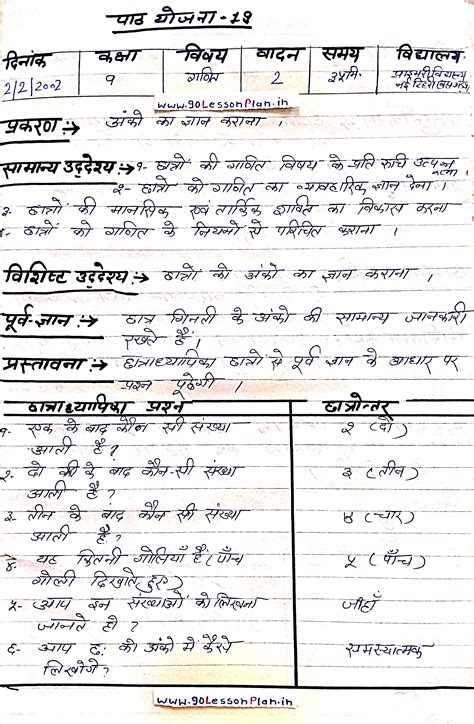 पाठ योजना - 19
दिनांक कक्षा विषय वादन समय विद्यालय
2/2/2002 १ गणित 2 ३५मि. प्राइमरी विद्यालय
नई टिहरी
www.90LessonPlan.in
प्रकरण :→ अंको का ज्ञान कराना ।
सामान्य उद्देश्य :→ १- छात्रों की गणित विषय के प्रति रुचि उत्पन्न करना ।
२- छात्रों को गणित का व्यावहारिक ज्ञान देना ।
३- छात्रों की मानसिक एवं तार्किक शक्ति का विकास करना
४- छात्रों को गणित के नियमों से परिचित कराना ।
विशिष्ट उद्देश्य :→ छात्रों को अंकों का ज्ञान कराना ।
पूर्व-ज्ञान :→ छात्र गिनती के अंकों की सामान्य जानकारी
रखते हैं ।
प्रस्तावना :→ छात्राध्यापिका छात्रों से पूर्व ज्ञान के आधार पर
प्रश्न पूछेगी ।
छात्राध्यापिका प्रश्न छात्रोत्तर
१- एक के बाद कौन सी संख्या २ (दो)
आती है ?
२- दो की के बाद कौन-सी संख्या ३ (तीन)
आती है ?
३- तीन के बाद कौन सी संख्या ४ (चार)
आती है ?
४- यह कितनी गोलियाँ हैं (पाँच ५ (पाँच)
गोली दिखाते हुए)
५- आप इन संख्याओं को लिखना जीहाँ
जानते हो ?
६- आप छः को अंको में कैसे समस्यात्मक
लिखोगे ?
www.90LessonPlan.in